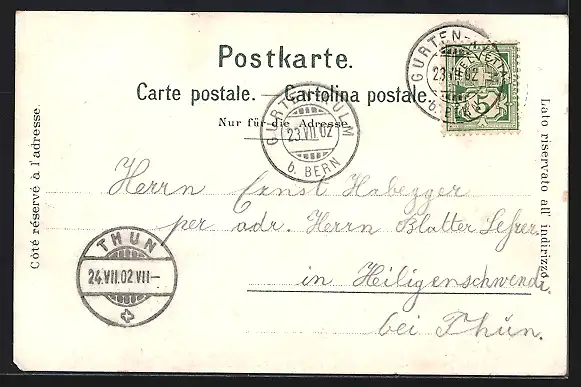 Postkarte.
Carte postale. — Cartolina postale.
Nur für die Adresse.
Côté réservé à l'adresse.
Lato riservato all' indirizzo.
GURTEN-KULM
23.VII.02
b. BERN
GURTEN-KULM
23.VII.02
b. BERN
HELVETIA
5
Herrn Ernst Habegger
per adr. Herrn Blatter Lehrer
in Heiligenschwendi,
bei Thun.
THUN
24.VII.02 VII—